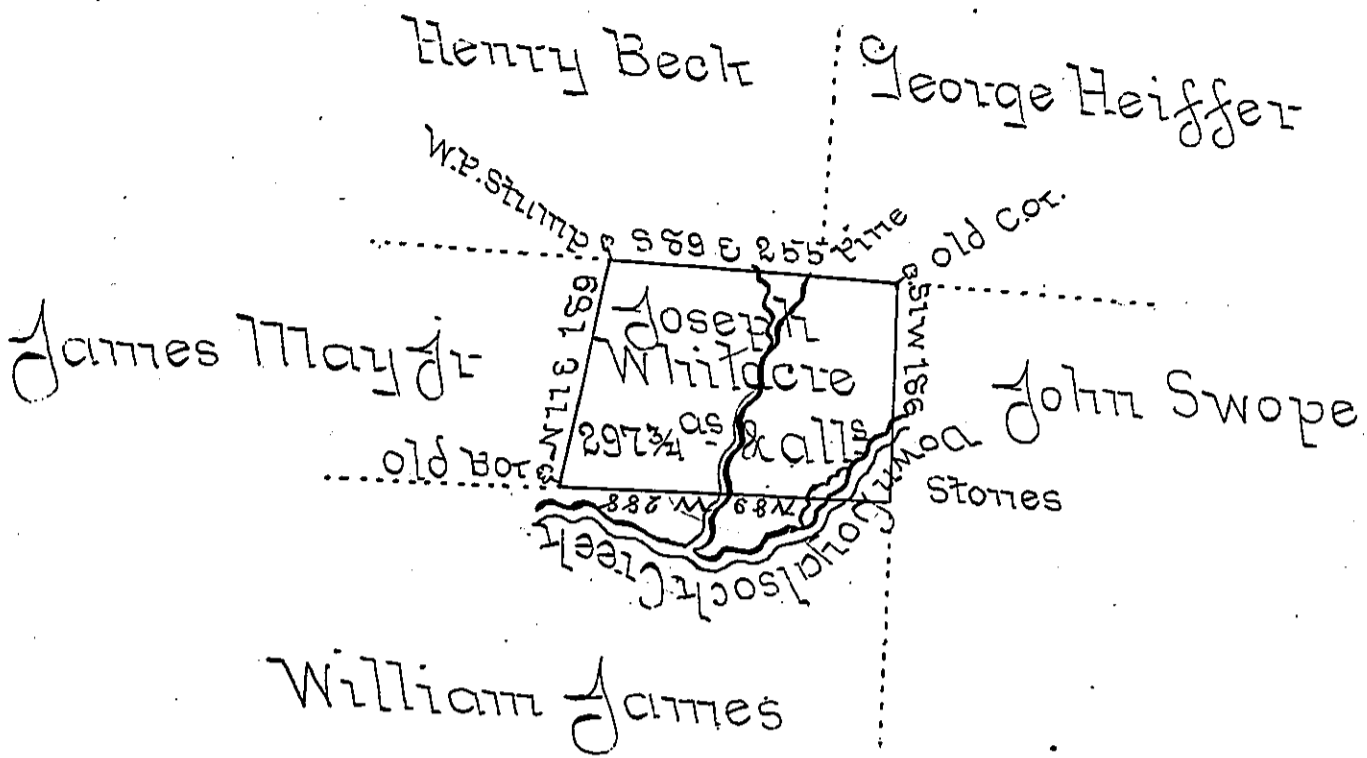 Henry Beck
George Heiffer
W.P. Stump
E 255
pine
old cor.
James May Jr
N11 E 189
Joseph
Whitacre
297¾ as & alls
S1W 186
John Swope
old cor
N89 W 288
Stones
Down Loyalsock Creek
William James